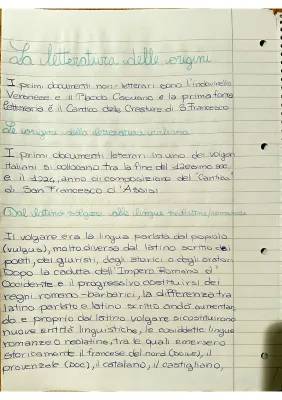 La letteratura delle origini
I primi documenti non letterari sono l'indovinello
Veronese e il Placito Capuano e la prima fonte
letteraria è il Cantico delle Creature di S. Francesco
Le origini della letteratura italiana
I primi documenti letterari in uno dei volgari
italiani si collocano tra la fine del 12esimo sec.
e il 1224, anno di composizione del "Cantico"
di San Francesco d'Assisi
Dal latino volgare alle lingue neolatine/romanze
Il volgare era la lingua parlata dal popolo
(vulgus), molto diversa dal latino scritto dei
poeti, dei giuristi, degli storici e degli oratori.
Dopo la caduta dell'Impero Romano d'
Occidente e il progressivo costituirsi dei
regni romano-barbarici, la differenza tra
latino parlato e latino scritto andò aumentan
do e proprio dal latino volgare si costituirono
nuove entità linguistiche, le cosiddette lingue
romanze o neolatine, tra le quali emersero
storicamente il francese del nord (                ), il
provenzale (DOC), il catalano, il castigliano,